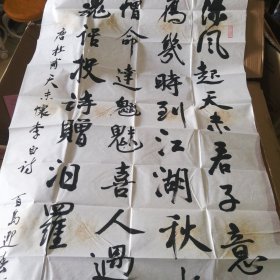 凉風起天末君子意
鴈幾時到江湖秋
憎命達魑魅喜人過
魂語投詩贈汨羅
唐杜甫天末懷李白詩
百馬迎